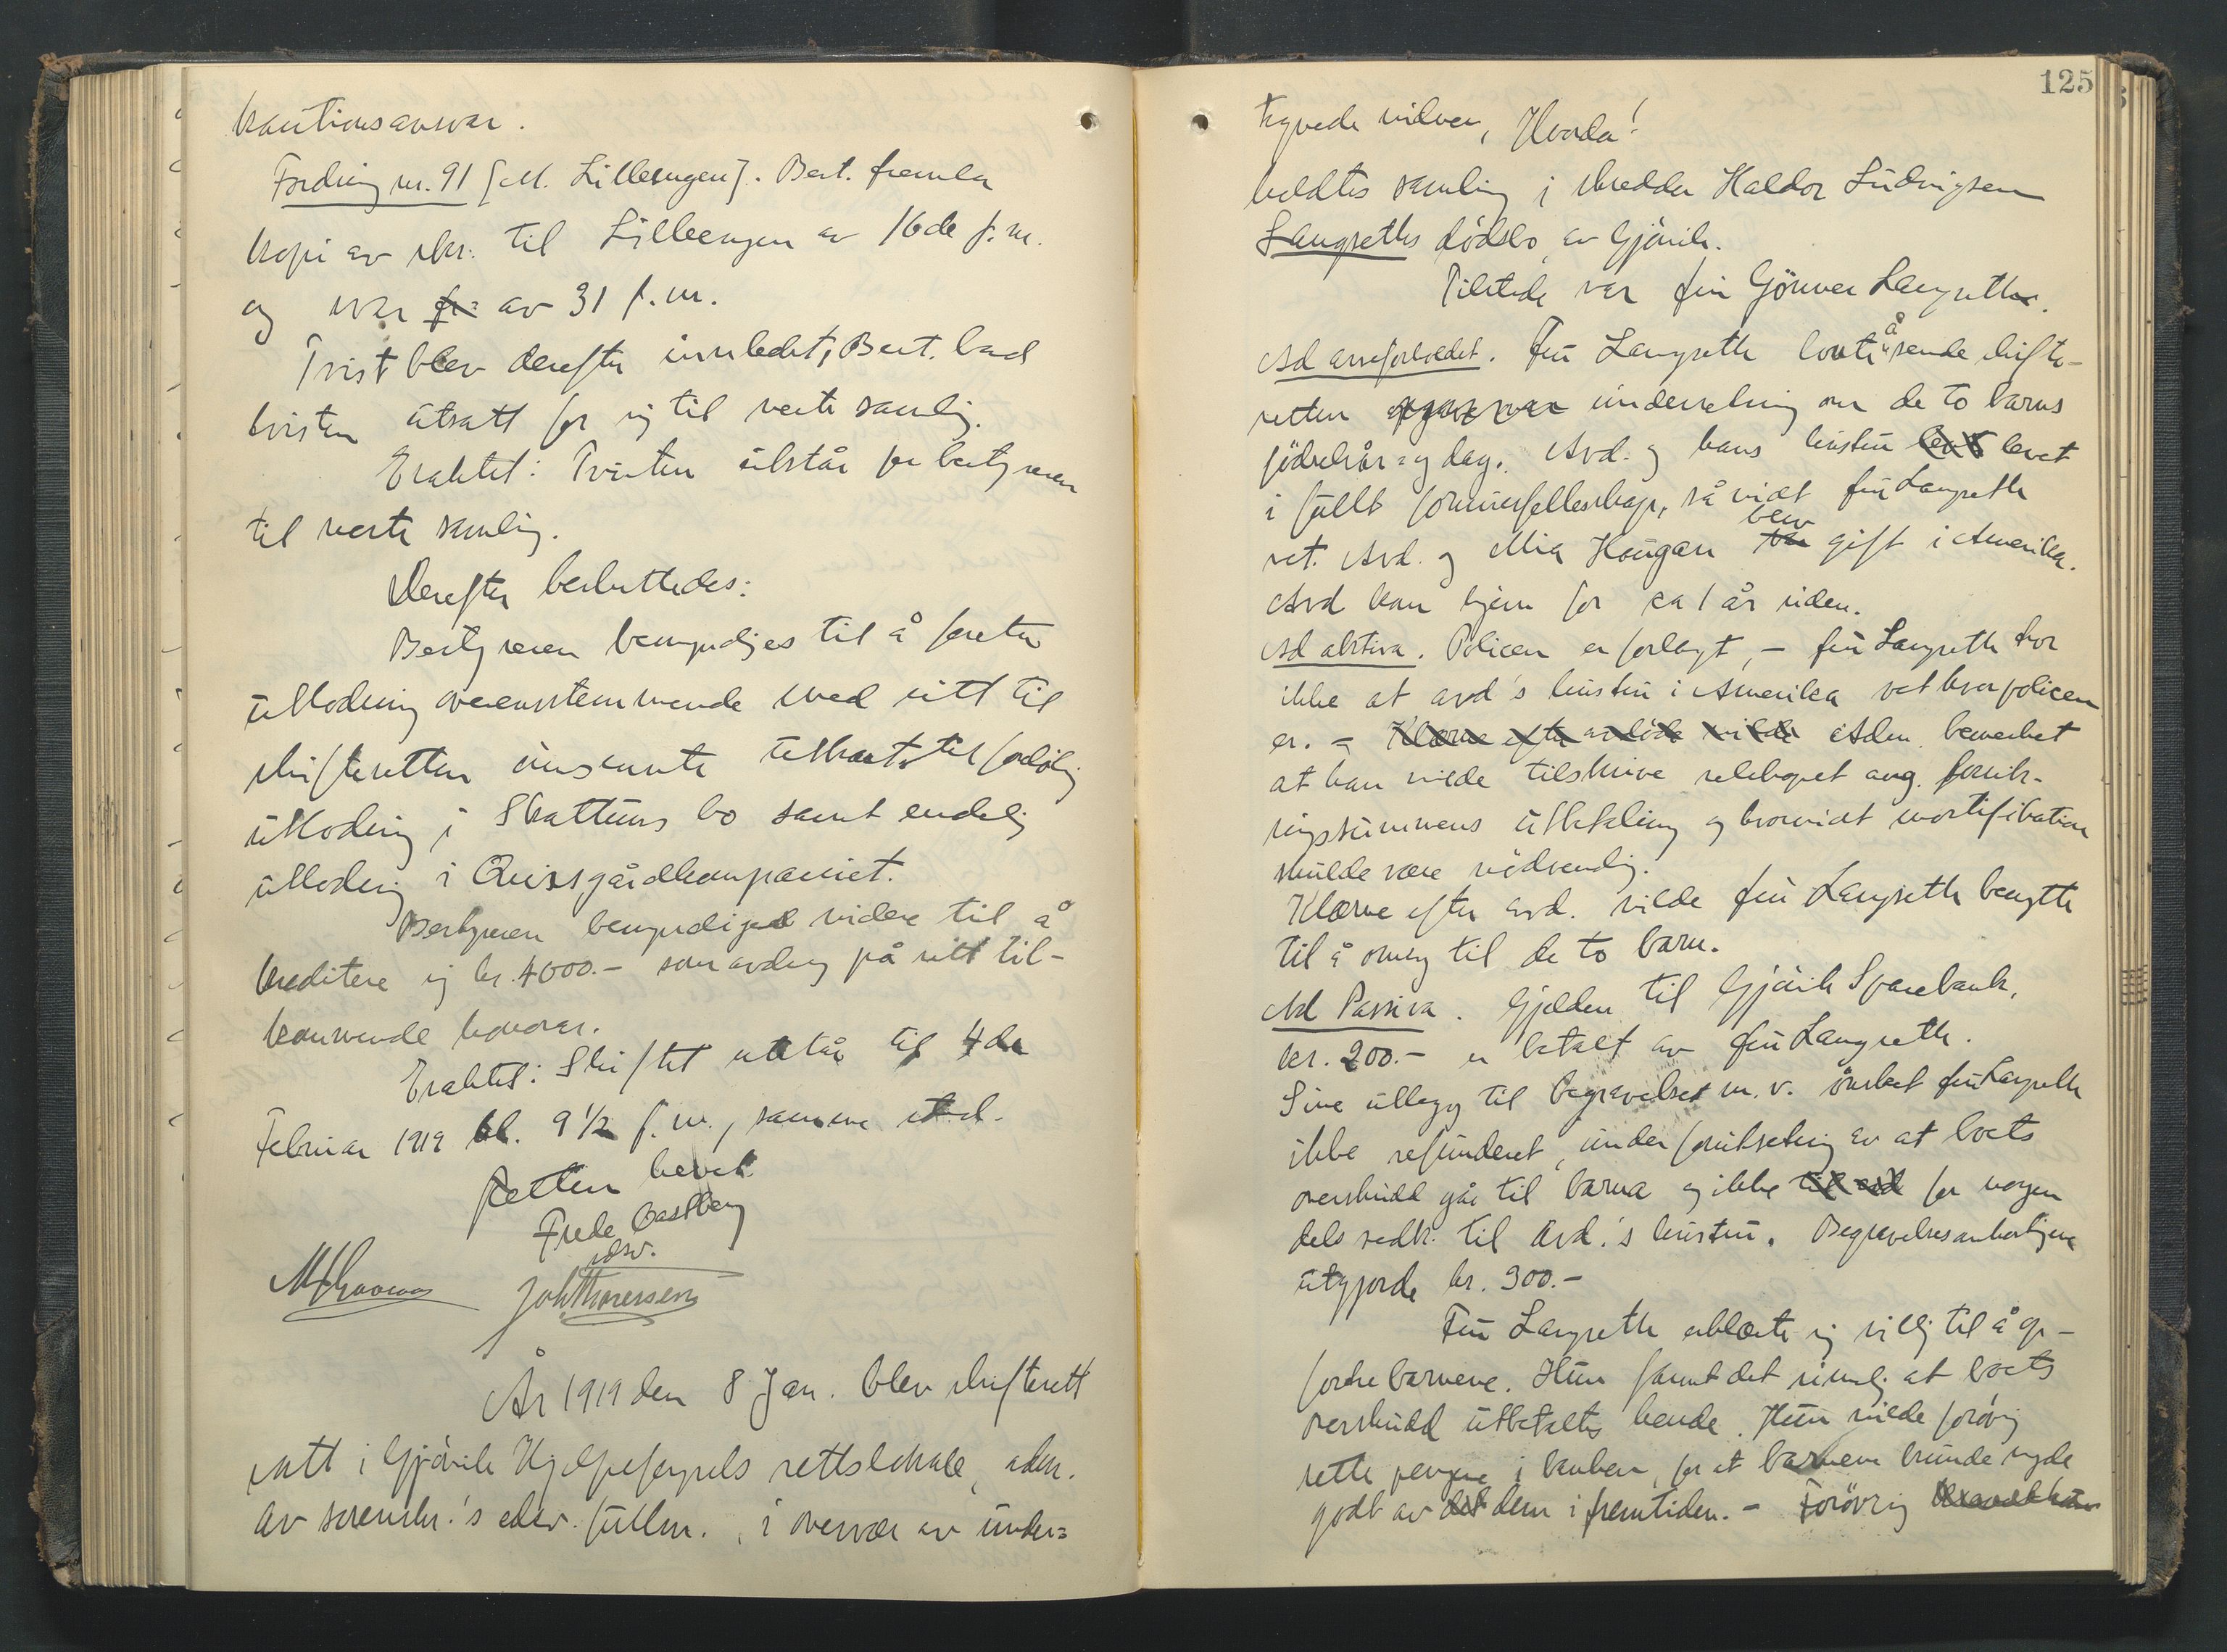 kautionsansvar.
Fordring nr. 91 [M. Lilleengen]. Best. fremla
kopi av skr. til Lilleengen av 16de f.m.
og svar fr: av 31 f.m.
Tvist blev derefter innledet, Best. bad
tvisten utsatt for sig til neste samling.
Eraktet: Tvisten utstår for bestyreren
til neste samling.
Derefter besluttedes:
Bestyreren bemyndiges til å foreta
utlodning overensstemmende med sitt til
skifteretten innsendte utkast til foreløbig
utlodning i Skattums bo samt endelig
utlodning i Quisgårdkompaniet.
Bestyreren bemyndiges videre til å
kreditere sig kr. 4000.- som avdrag på sitt til-
kommende honorar.
Eraktet: Skiftet utstår til 4de
Februar 1919 kl. 9 1/2 f.m., samme sted.
Retten hevet
Frede Castberg
edsv.
Joh Thoresen
År 1919 den 8 Jan. blev skifterett
satt i Gjövik Hjelpefengsels rettslokale, adm.
av sorenskr.'s edsv. fullm., i overvær av under=
125
tegnede vidner, Hvorda!
holdtes samling i skredder Haldor Ludvigsen
Langseths dödsbo, av Gjövik.
Tilstede var fru Gönner Langseth.
Ad arveforholdet. Fru Langseth lovte å sende skifte-
retten underretning om de to barns
födselsår- og dag. Avd. og hans hustru levet
i fullt formuesfellesskap, så vidt fru Langseth
vet. Avd. og Mia Haugan blev gift i Amerika.
Avd kom hjem for ca 1 år siden.
Ad aktiva. Policen er forlagt, - fru Langseth tror
ikke at avd's hustru i Amerika vet hvor policen
er. - Klærne efter avdöde vilde Adm. bemerket
at han vilde tilskrive selskapet ang. forsik-
ringssummens utbetaling og hvorvidt mortifikation
skulde være nödvendig.
Klærne efter avd. vilde fru Langseth benytte
til å omsy til de to barn.
Ad Passiva. Gjelden til Gjövik Sparebank,
kr. 200.- er betalt av fru Langseth.
Sine utlegg til begravelse m.v. önsket fru Langseth
ikke refunderet, under forutsetning av at boets
overskudd går til barna og ikke for nogen
dels vedk. til avd.'s hustru. Begravelsesomkostningene
utgjorde kr. 300.-
Fru Langseth erklærte sig villig til å op-
fostre barnene. Hun fandt det rimelig at boets
overskudd utbetaltes hende. Hun vilde forövrig
sette pengene i banken, for at barnene kunde nyde
godt av det dem i fremtiden. - Forövrig